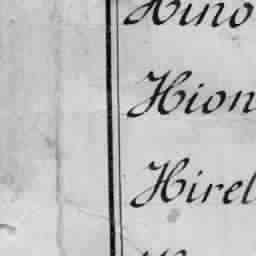 Hino
Hion
Hirel